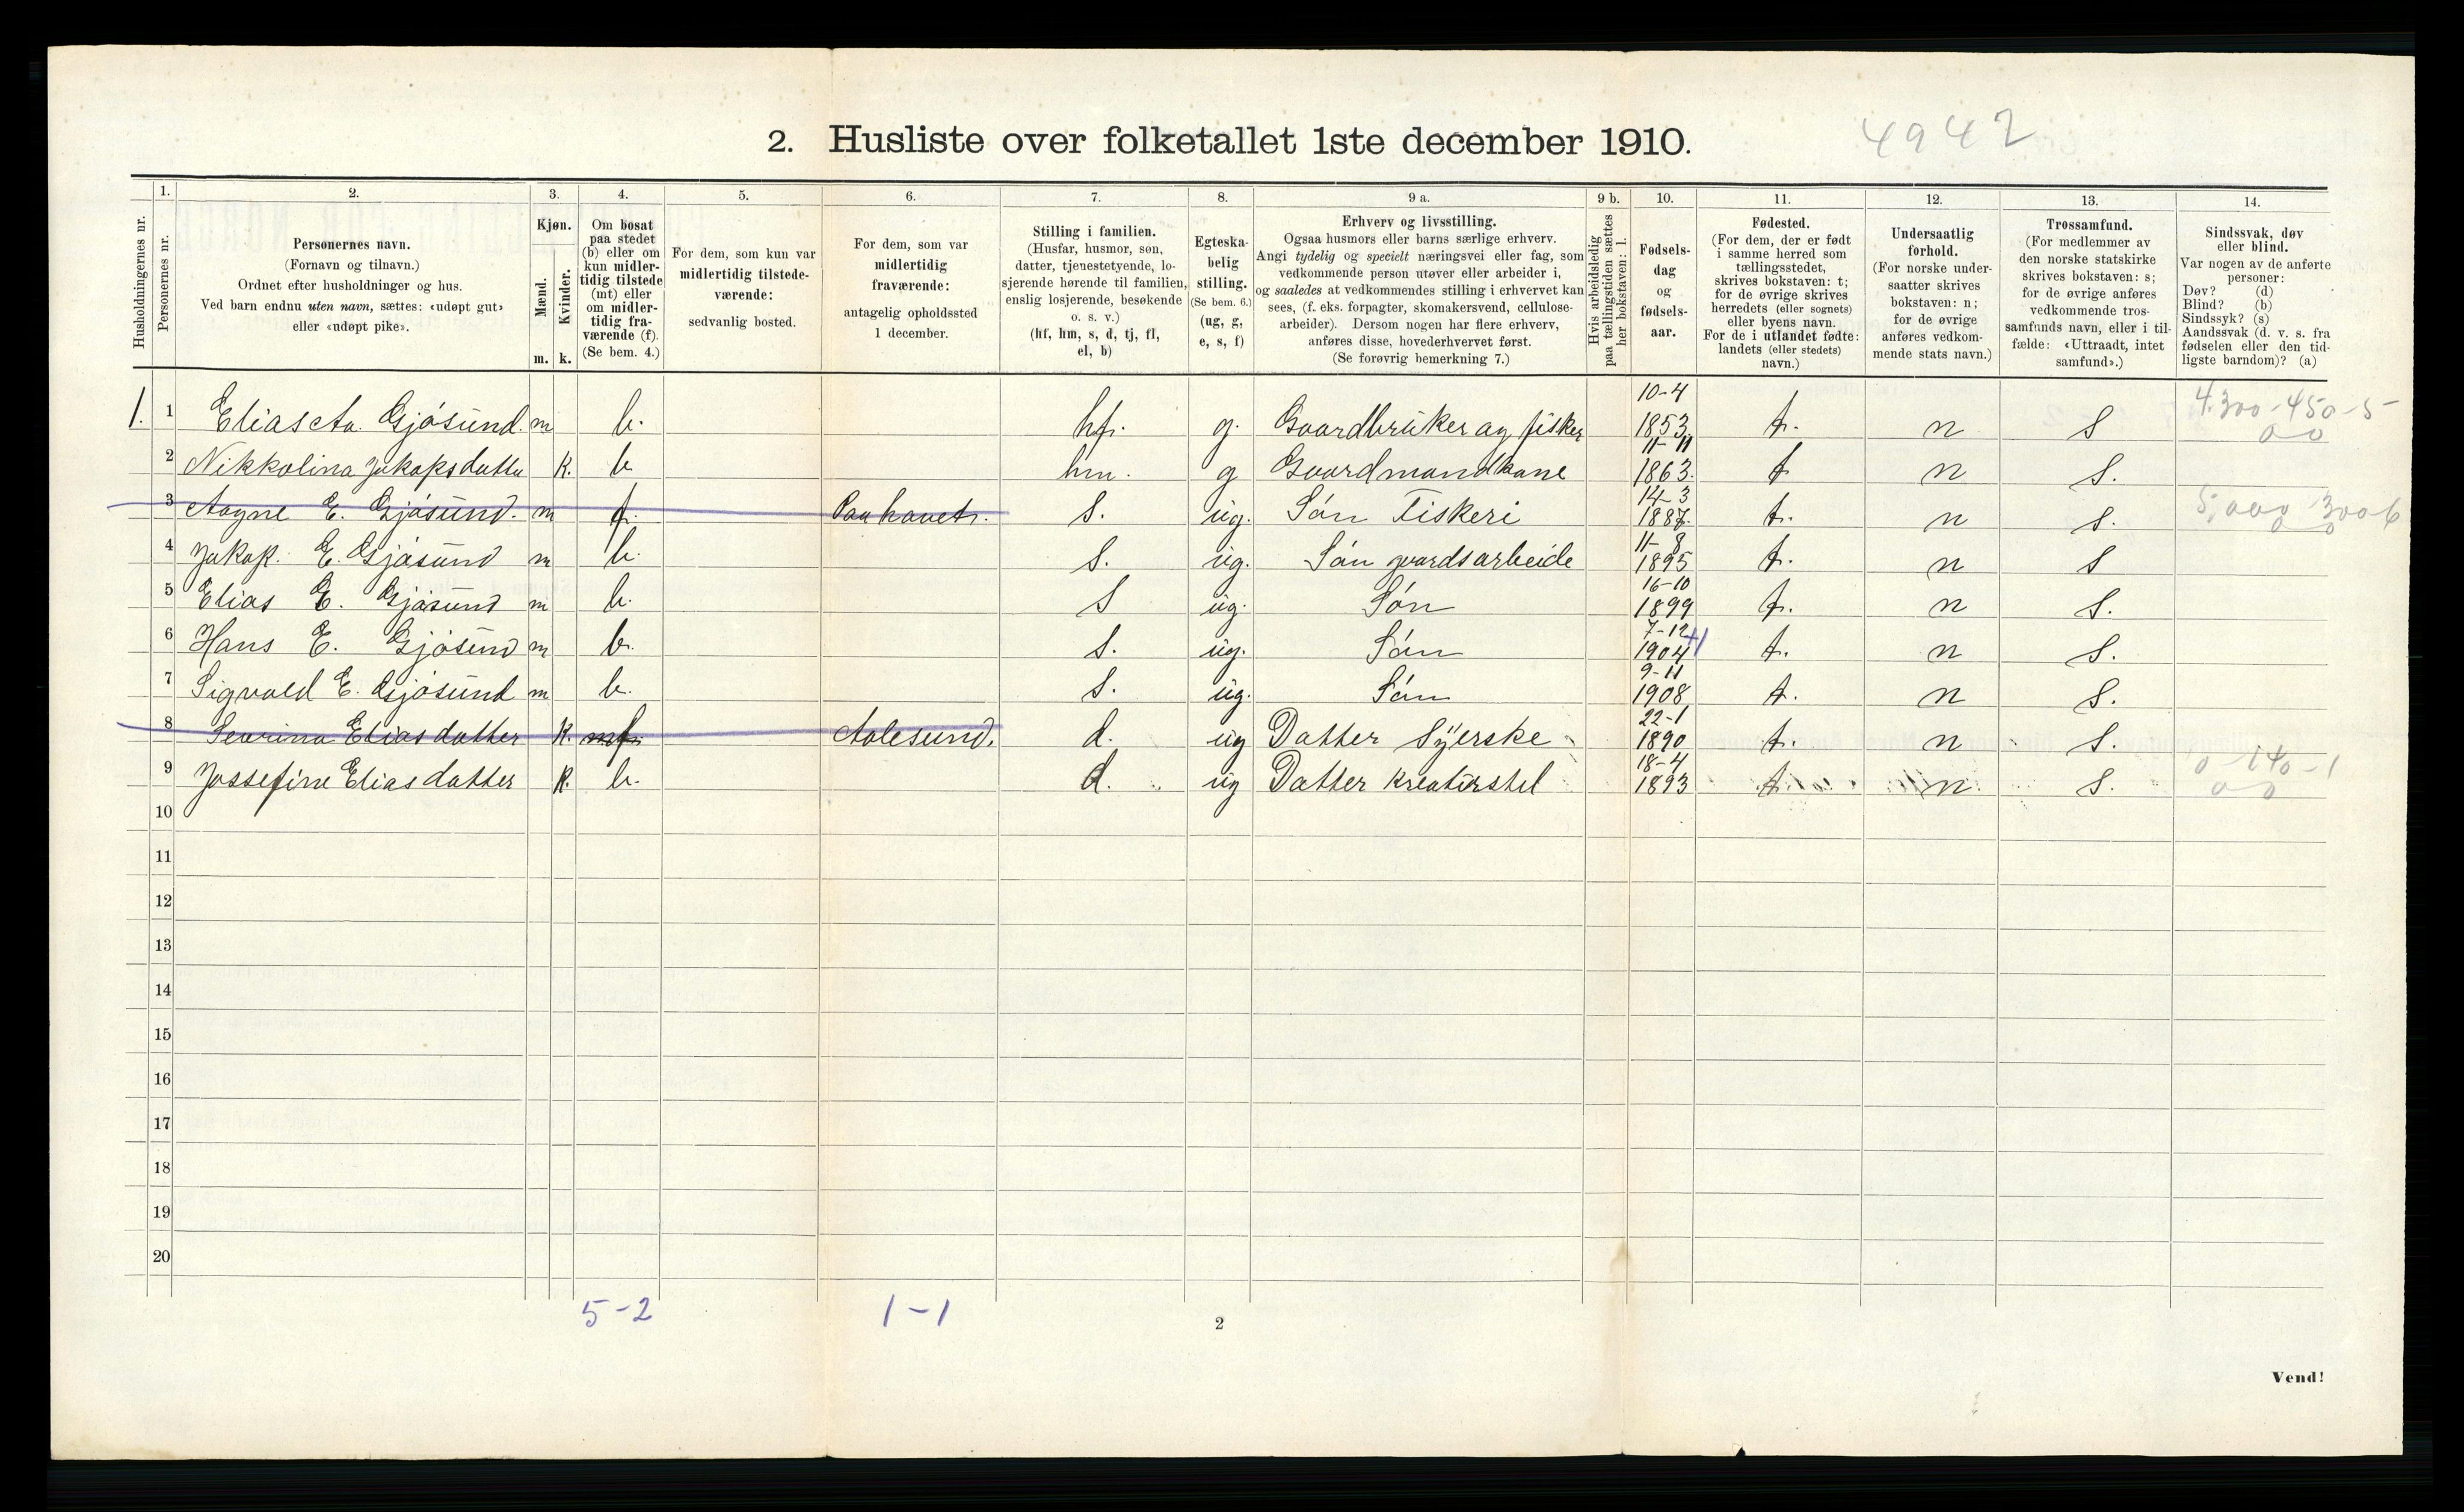 2. Husliste over folketallet 1ste december 1910.
4942
Husholdningernes nr.
1.
Personernes nr.
2.
Personernes navn.
(Fornavn og tilnavn.)
Ordnet efter husholdninger og hus.
Ved barn endnu uten navn, sættes: «udøpt gut»
eller «udøpt pike».
3.
Kjøn.
Mænd.
Kvinder.
m. k.
4.
Om bosat
paa stedet
(b) eller om
kun midler-
tidig tilstede
(mt) eller
om midler-
tidig fra-
værende (f).
(Se bem. 4.)
5.
For dem, som kun var
midlertidig tilstede-
værende:
sedvanlig bosted.
6.
For dem, som var
midlertidig
fraværende:
antagelig opholdssted
1 december.
7.
Stilling i familien.
(Husfar, husmor, søn,
datter, tjenestetyende, lo-
sjerende hørende til familien,
enslig losjerende, besøkende
o. s. v.)
(hf, hm, s, d, tj, fl,
el, b)
8.
Egteska-
belig
stilling.
(Se bem. 6.)
(ug, g,
e, s, f)
9 a.
Erhverv og livsstilling.
Ogsaa husmors eller barns særlige erhverv.
Angi tydelig og specielt næringsvei eller fag, som
vedkommende person utøver eller arbeider i,
og saaledes at vedkommendes stilling i erhvervet kan
sees, (f. eks. forpagter, skomakersvend, cellulose-
arbeider). Dersom nogen har flere erhverv,
anføres disse, hovederhvervet først.
(Se forøvrig bemerkning 7.)
9 b.
Hvis arbeidsledig
paa tællingstiden sættes
her bokstaven: l.
10.
Fødsels-
dag
og
fødsels-
aar.
11.
Fødested.
(For dem, der er født
i samme herred som
tællingsstedet,
skrives bokstaven: t;
for de øvrige skrives
herredets (eller sognets)
eller byens navn.
For de i utlandet fødte:
landets (eller stedets)
navn.)
12.
Undersaatlig
forhold.
(For norske under-
saatter skrives
bokstaven: n;
for de øvrige
anføres vedkom-
mende stats navn.)
13.
Trossamfund.
(For medlemmer av
den norske statskirke
skrives bokstaven: s;
for de øvrige anføres
vedkommende tros-
samfunds navn, eller i til-
fælde: «Uttraadt, intet
samfund».)
14.
Sindssvak, døv
eller blind.
Var nogen av de anførte
personer:
Døv? (d)
Blind? (b)
Sindssyk? (s)
Aandssvak (d. v. s. fra
fødselen eller den tid-
ligste barndom)? (a)
1. 1 Elias A. Gjósund. m b. hf. g. Gaardbruker og fisker 10-4 1853 t. n S 4.300-450-5 00
2 Nikkolina Jakopsdatter K. b hm. g Gaardmandkone 11-11 1863. t n S.
3 Aagne E. Gjósund. m f. Paa havet. S. ug. Són Fiskeri 14-3 1887. t. n S. 5,000 3006 0 0
4 Jakop. E. Gjósund m b. S. ug. Són gaardsarbeide 11-8 1895 t. n S
5 Elias E. Gjósund m b. S ug. Són 16-10 1899 t. n S.
6 Hans E. Gjósund m b. S. ug. Són 7-12 1904 t. n S.
7 Sigvald E. Gjósund m b. S. ug. Són 9-11 1908 t. n S.
8 Sevrina Eliasdatter K. mf. Aalesund. d. ug Datter Syerske 22-1 1890 t. n S.
9 Jossefine Eliasdatter K. b. d. ug Datter Kreaturstel 18-4 1893 t. n S. 0-140-1 00
10
11
12
13
14
15
16
17
18
19
20
5-2 1-1
2
Vend!